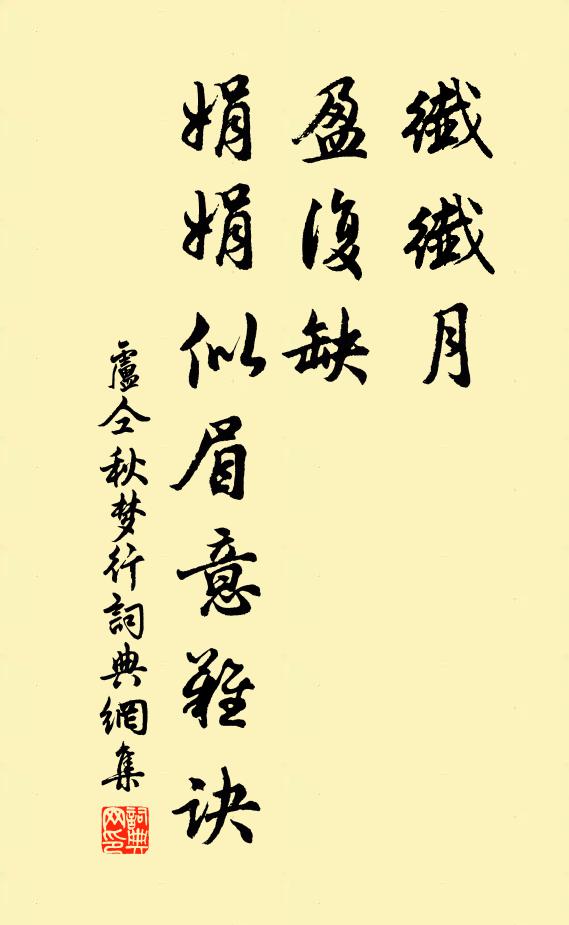 纖纖月
盈復缺
娟娟似眉意難訣
盧仝秋梦行詞典網集
詞典网印